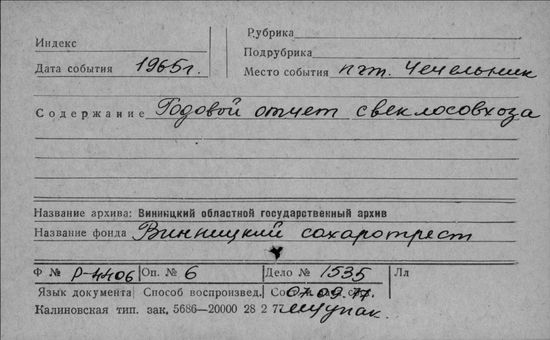 Индекс
Рубрика
Подрубрика
Дата события 1965г. Место события пгт. Чечельник
Содержание Годовой отчет свеклосовхоза
Название архива: Винницкий областной государственный архив
Название фонда Винницкий сахаротрест
Ф № Р-4406 Оп. № 6 Дело № 1535 Лл
Язык документа Способ воспроизвед. 07.09.77
Калиновская тип. зак. 5686—20000 28 2 77